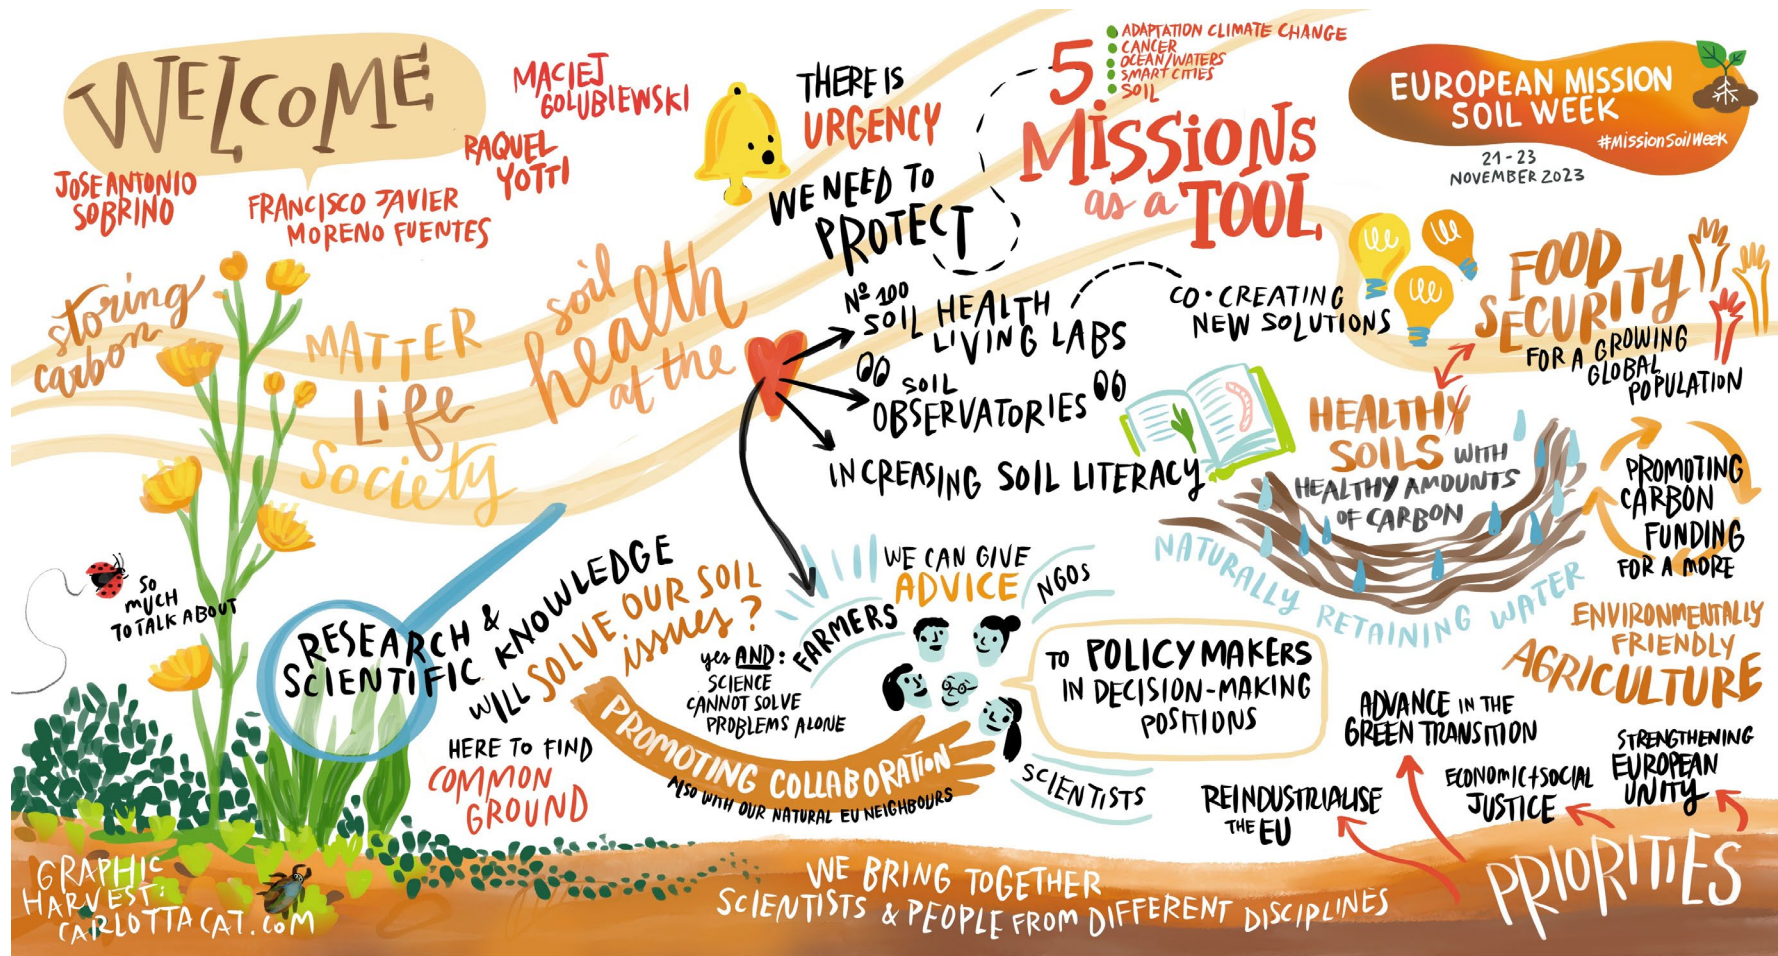 WELCOME
JOSE ANTONIO
SOBRINO
FRANCISCO JAVIER
MORENO FUENTES
RAQUEL
YOTTI
MACIEJ
GOLUBIEWSKI
THERE IS
URGENCY
WE NEED TO
PROTECT
5
ADAPTATION CLIMATE CHANGE
CANCER
OCEAN/WATERS
SMART CITIES
SOIL
MISSIONS
as a TOOL
EUROPEAN MISSION
SOIL WEEK
#MissionSoilWeek
21-23
NOVEMBER 2023
storing
carbon
MATTER
Life
Society
soil
health
at the
Nº 100
SOIL HEALTH
LIVING LABS
CO-CREATING
NEW SOLUTIONS
SOIL
OBSERVATORIES
INCREASING SOIL LITERACY
FOOD
SECURITY
FOR A GROWING
GLOBAL
POPULATION
HEALTHY
SOILS WITH
HEALTHY AMOUNTS
OF CARBON
NATURALLY RETAINING WATER
PROMOTING
CARBON
FUNDING
FOR A MORE
ENVIRONMENTALLY
FRIENDLY
AGRICULTURE
SO
MUCH
TO TALK ABOUT
RESEARCH &
SCIENTIFIC KNOWLEDGE
WILL SOLVE OUR SOIL
issues?
yes AND:
SCIENCE
CANNOT SOLVE
PROBLEMS ALONE
HERE TO FIND
COMMON
GROUND
PROMOTING COLLABORATION
ALSO WITH OUR NATURAL EU NEIGHBOURS
WE CAN GIVE
ADVICE
FARMERS
NGOS
SCIENTISTS
TO POLICY MAKERS
IN DECISION-MAKING
POSITIONS
REINDUSTRIALISE
THE EU
ADVANCE IN THE
GREEN TRANSITION
ECONOMIC + SOCIAL
JUSTICE
STRENGTHENING
EUROPEAN
UNITY
PRIORITIES
WE BRING TOGETHER
SCIENTISTS & PEOPLE FROM DIFFERENT DISCIPLINES
GRAPHIC
HARVEST:
CARLOTTACAT.COM